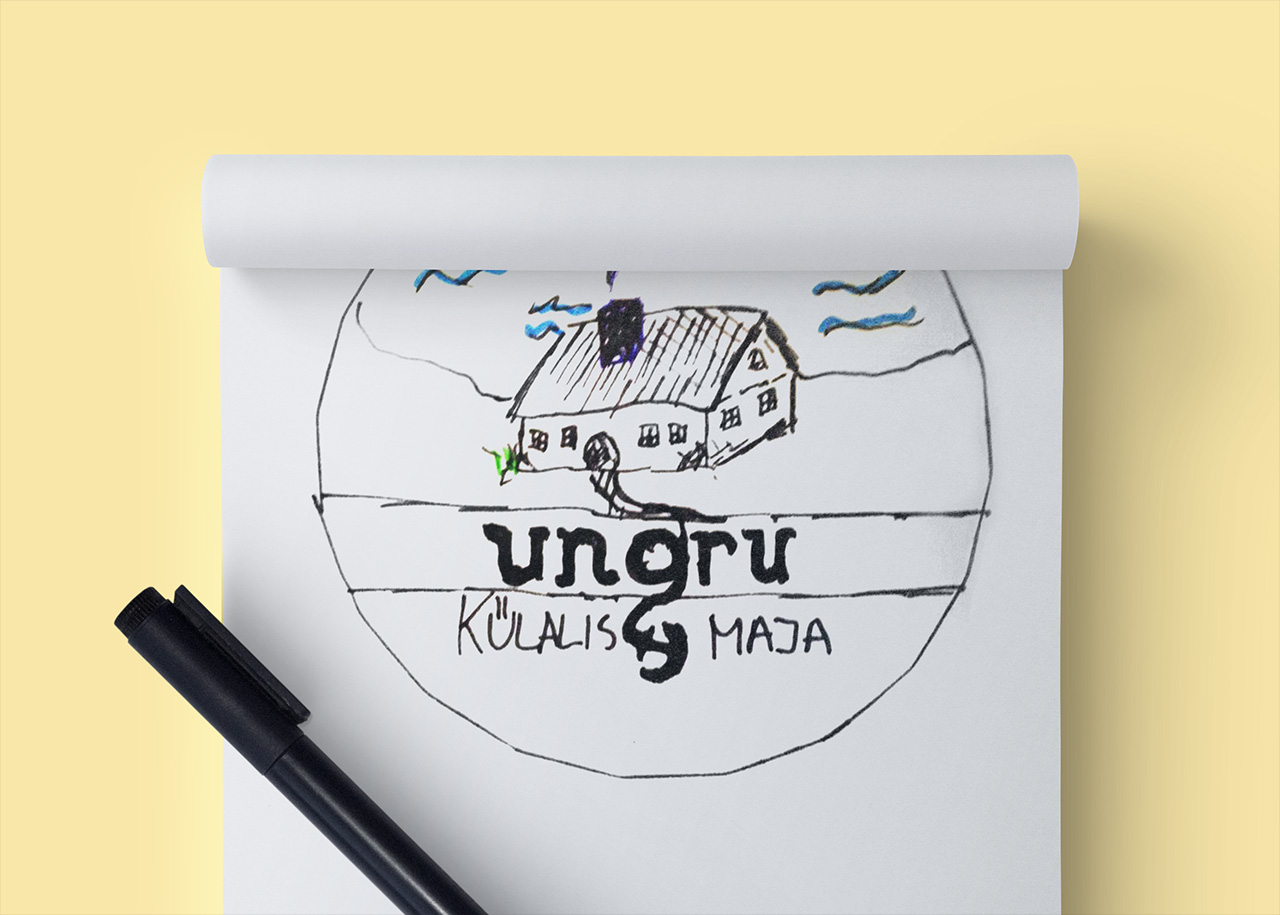 ungru
KÜLALIS MAJA